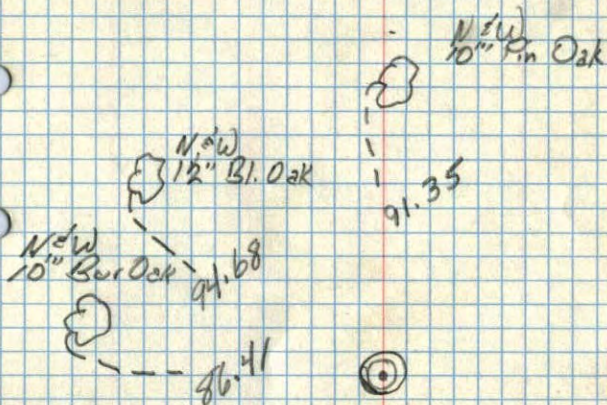 N & W
10" Pin Oak
N & W
12" Bl. Oak
91.35
N & W
10" Bur Oak
94.68
86.41